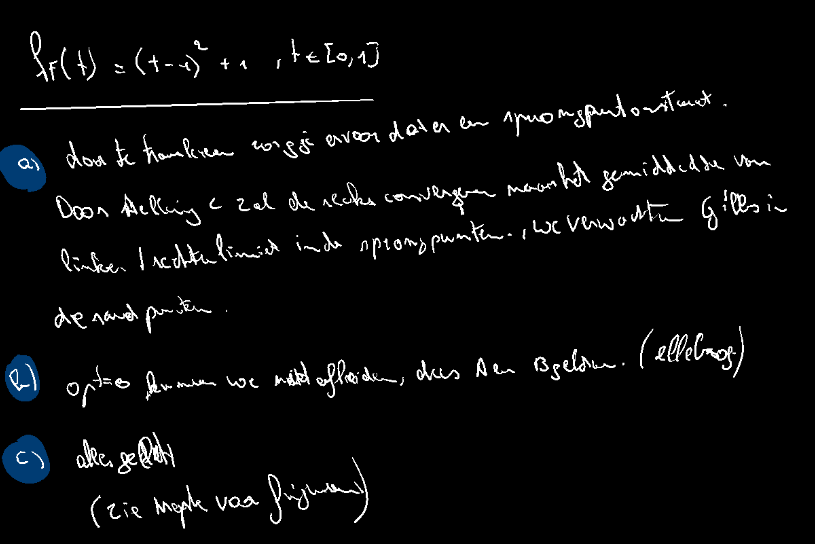 f(t) = (t-1)² + 1 , t ∈ [0,1]
a) door te en zorg je ervoor dat er een sprongpunt ontstaat.
Door stelling C zal de reeks convergeren naar het gemiddelde van
linker / rechterlimiet in de sprongpunten. , we verwachten Gibbs in
de randpunten.
b) op t=0 kunnen we niet afleiden, dus A en B gelden. (elleboog)
c) alles geldt
(zie voor)